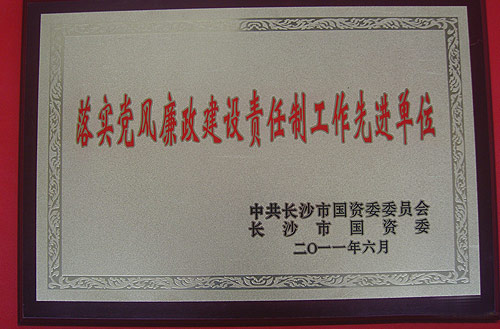 落实党风廉政建设责任制工作先进单位
中共长沙市国资委委员会
长沙市国资委
二〇一一年六月